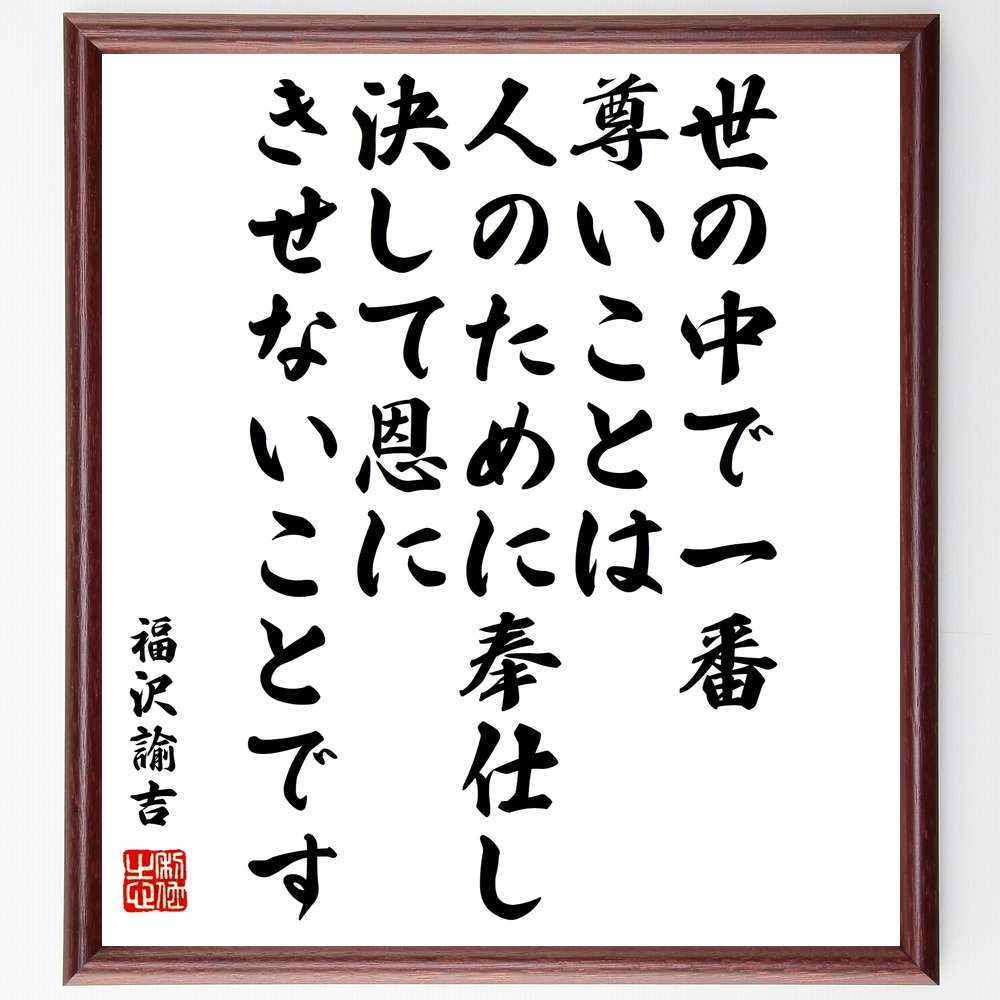 世の中で一番
尊いことは
人のために奉仕し
決して恩に
きせないことです
福沢諭吉